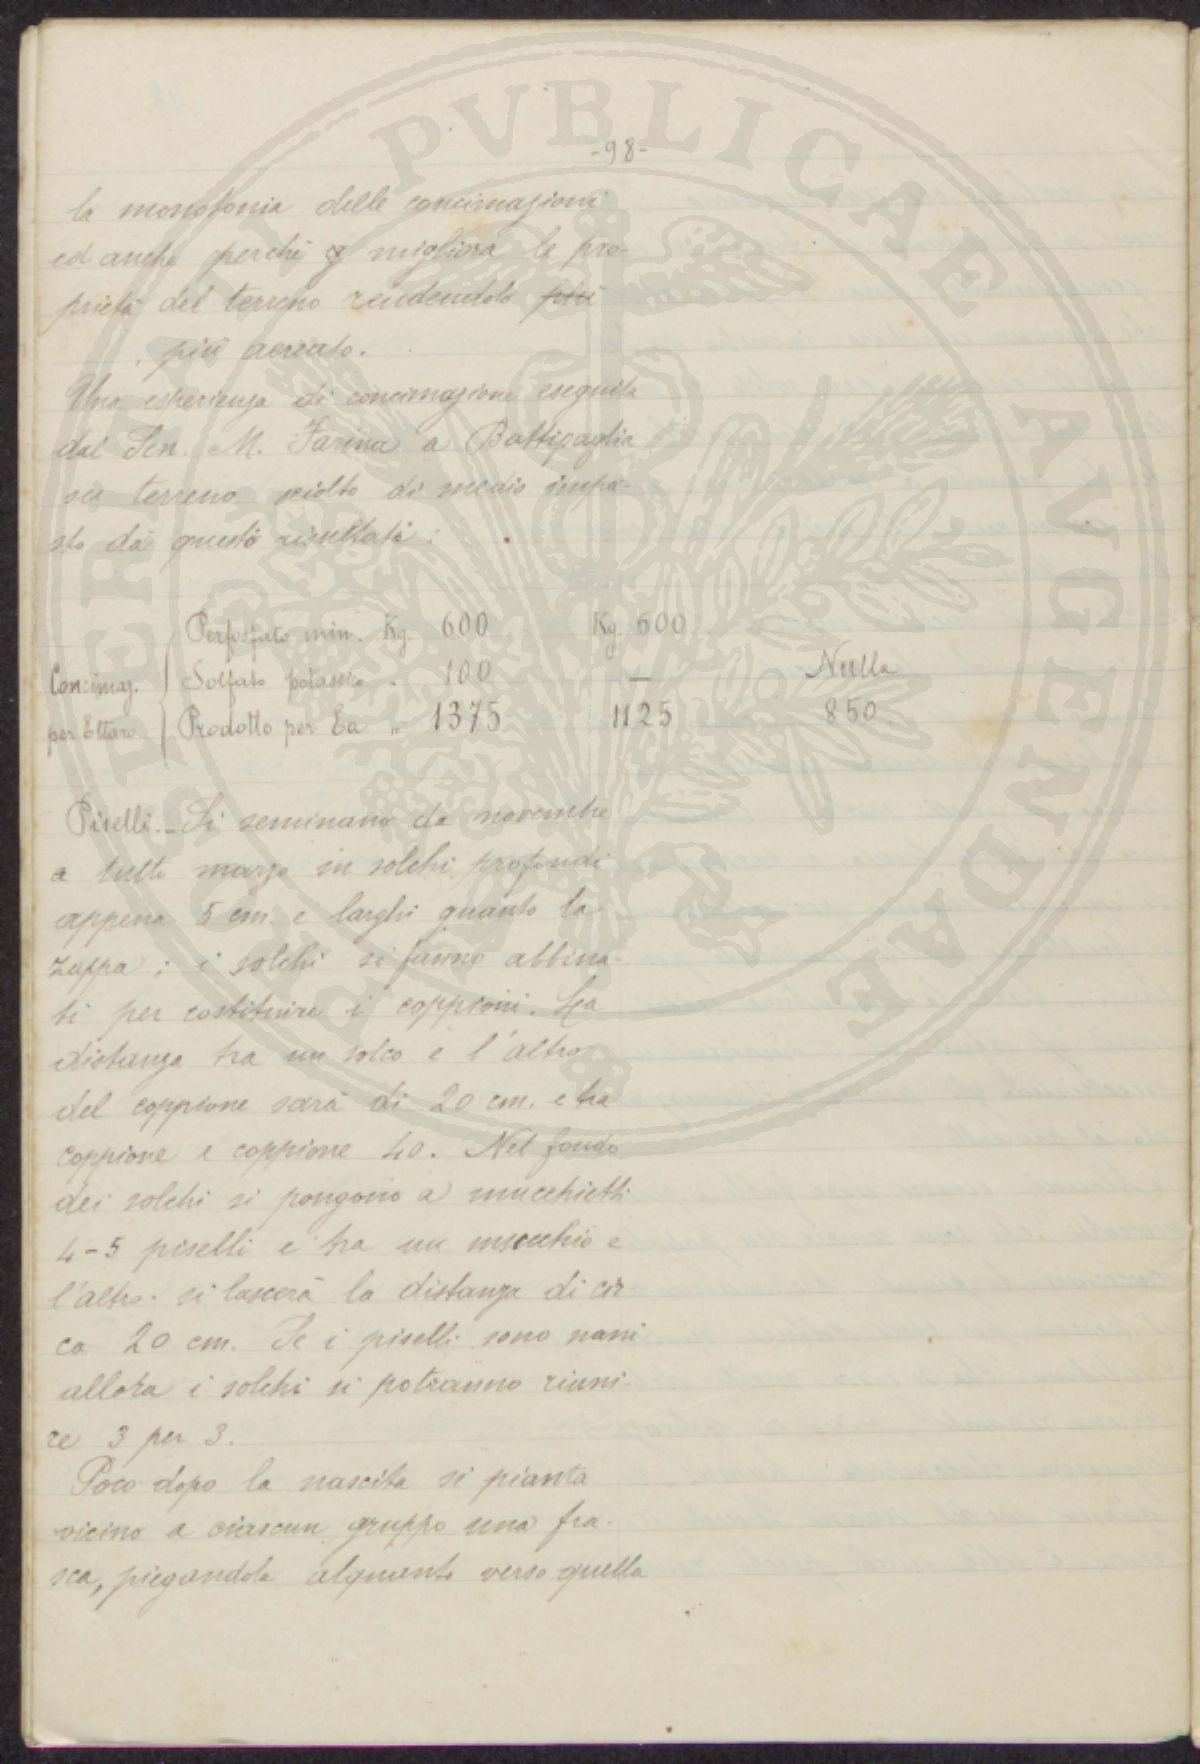 -98-
la monotonia delle concimazioni
ed anche perchè migliora le pro-
prietà del terreno rendendolo più
più aereato.
Una esperienza di concimazione eseguita
dal Sen. M. Farina a Battipaglia
su terreno sciolto di medio impa-
sto dà questi risultati:
Perfosfato min. Kg. 600 Kg. 600
Concimaz. Solfato potassico " 100 — Nulla
per Ettaro Prodotto per Ea " 1375 1125 850.
Piselli. - Si seminano da novembre
a tutto marzo in solchi profondi
appena 5 cm. e larghi quanto la
zappa; i solchi si fanno abbina-
ti per costituire i coppioni. La
distanza tra un solco e l'altro
del coppione sarà di 20 cm. e tra
coppione e coppione 40. Nel fondo
dei solchi si pongono a mucchietti
4-5 piselli e tra un mucchio e
l'altro si lascerà la distanza di cir-
ca 20 cm. Se i piselli sono nani
allora i solchi si potranno riuni-
re 3 per 3.
Poco dopo la nascita si pianta
vicino a ciascun gruppo una fra-
sca, piegandola alquanto verso quella
PVBLICAE AVGENDAE